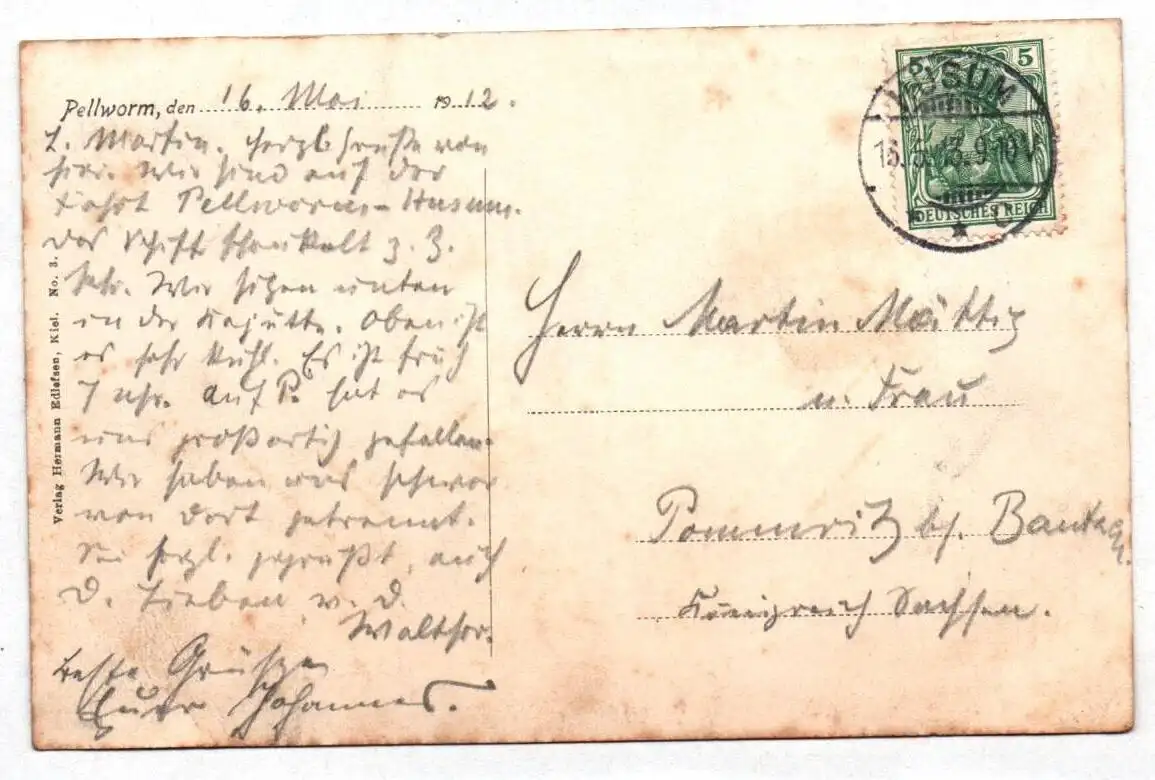 Pellworm, den 16. Mai 1912.
L. Martin. Herzl. Grüße von
hier. Wir sind auf der
Fahrt Pellworm–Husum.
Das Schiff schaukelt z. Z.
sehr. Wir sitzen unten
in der Kajütte. Oben ist
es sehr kühl. Es ist früh
7 Uhr. Auf P. hat es
uns großartig gefallen.
Wir haben uns schwer
von dort getrennt.
Sei herzl. gegrüßt, auch
D. Lieben v. D.
Walther.
Beste Grüsze
Euer Johannes.
Verlag Hermann Edlefsen, Kiel. No. 3.
5 5
DEUTSCHES REICH
HUSUM
9-10 V
* C
Herrn Martin Mättig
u. Frau
Pommritz b/ Bautzen.
Königreich Sachsen.